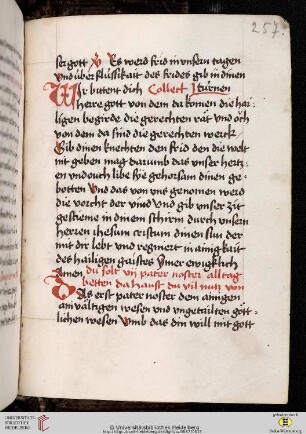 257
ser gott V Es werd frid in vnsern tagen
vnd über flüssikait des frides gib in dinen
Wir bittent dich Collect türnen
herre gott von dem da komen die hai-
ligen begirde die gerechten rät vnd öch
von dem da sind die gerechten werck
Gib dinen knechten den frid den die welt
mit geben mag darumb das vnser hertz-
en vnd ouch libe sÿe gehorsam dinen ge-
botten Vnd das von vns genomen werd
die vorcht der vind vnd gib vnser zit
gestieme in dinem schirm durch vnsern
herren ihesum cristum dinen sun der
mit dir lebt vnd regniert in ainigkait
des hailigen gaistes ymer ewigklich
Amen du solt vij pater noster alltag
betten da haust du vil nutz von
Das erst pater noster dem ainigen
ainvältigen wesen vnd vngetailten gött-
lichen wesen Vmb das din will mit gott
UNIVERSITÄTS-
BIBLIOTHEK
HEIDELBERG
© Universitätsbibliothek Heidelberg